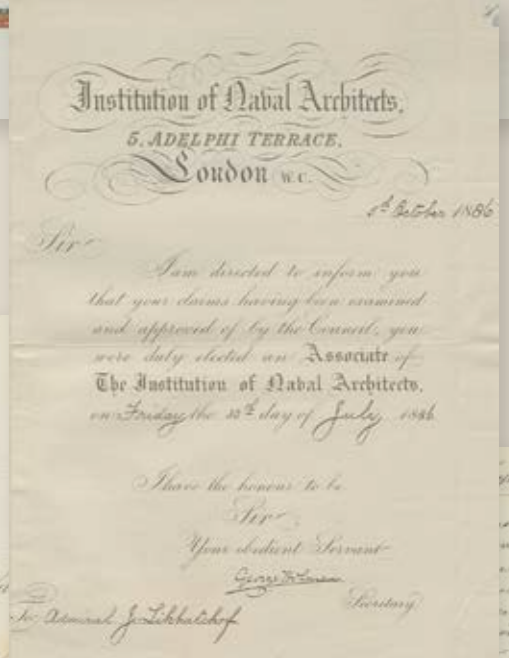 Institution of Naval Architects,
5, ADELPHI TERRACE,
London W.C.
October 1886
Sir
I am directed to inform you
that your claims having been examined
and approved of by the Council, you
were duly elected an Associate of
The Institution of Naval Architects,
on Friday the day of July 1886
I have the honour to be
Sir
Your obedient Servant
George Holmes
Secretary
To Admiral J. Likhatchof